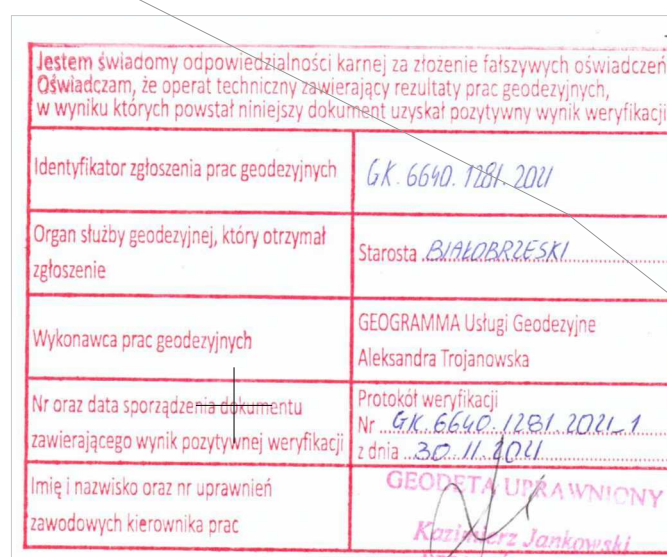 Jestem świadomy odpowiedzialności karnej za złożenie fałszywych oświadczeń
Oświadczam, że operat techniczny zawierający rezultaty prac geodezyjnych,
w wyniku których powstał niniejszy dokument uzyskał pozytywny wynik weryfikacji
Identyfikator zgłoszenia prac geodezyjnych
GK.6640.1281.2021
Organ służby geodezyjnej, który otrzymał
zgłoszenie
Starosta BIAŁOBRZESKI
Wykonawca prac geodezyjnych
GEOGRAMMA Usługi Geodezyjne
Aleksandra Trojanowska
Nr oraz data sporządzenia dokumentu
zawierającego wynik pozytywnej weryfikacji
Protokół weryfikacji
Nr GK.6640.1281.2021_1
z dnia 30.11.2021
Imię i nazwisko oraz nr uprawnień
zawodowych kierownika prac
GEODETA UPRAWNIONY
Kazimierz Jankowski